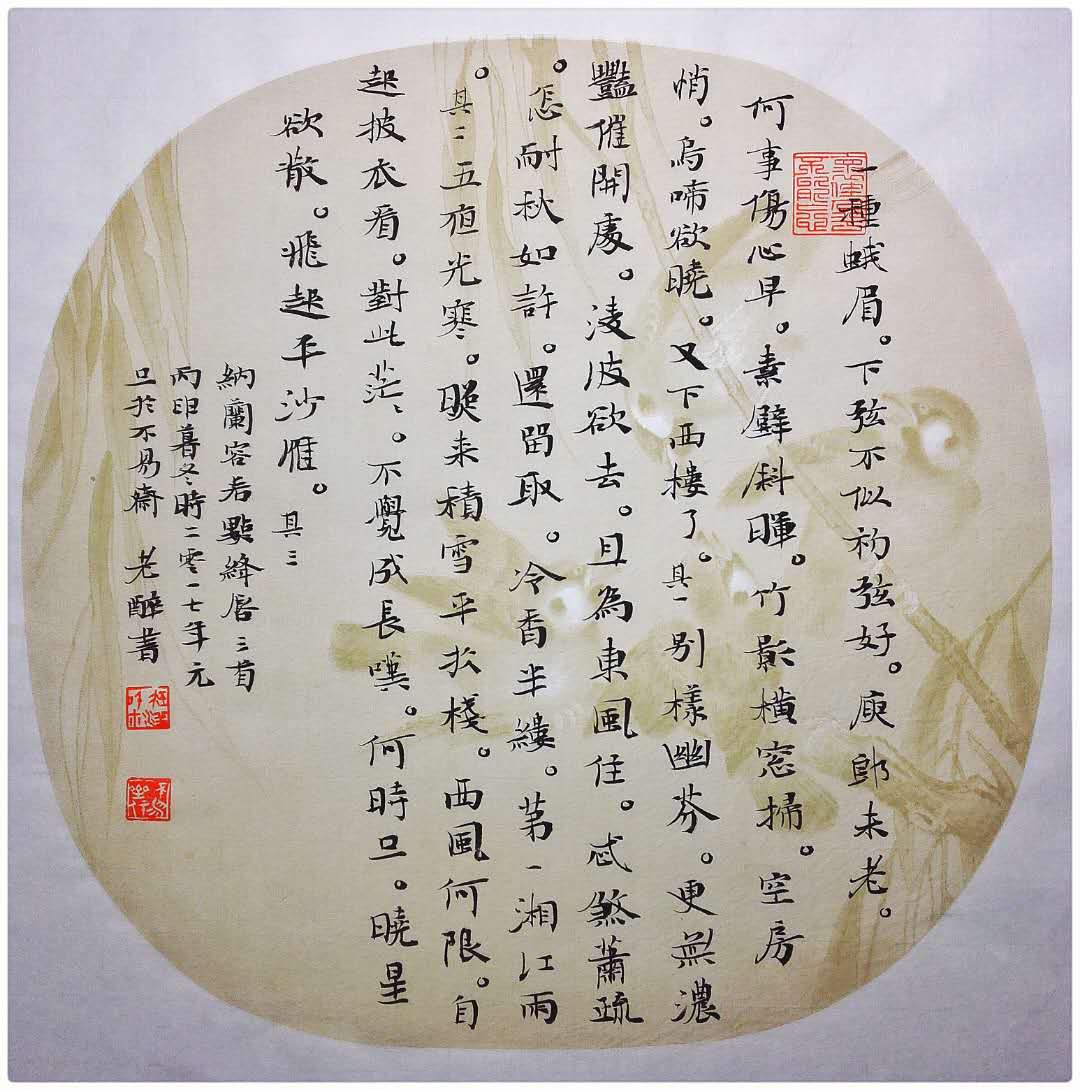 一種蛾眉。下弦不似初弦好。庾郎未老。
何事傷心早。素壁斜暉。竹影橫窓掃。空房
悄。烏啼欲曉。又下西樓了。其一别樣幽芬。更無濃
豔催開處。淩波欲去。且為東風住。忒煞蕭疏
。怎耐秋如許。還留取。冷香半縷。第一湘江雨
。其二五夜光寒。照来積雪平扵棧。西風何限。自
起披衣看。對此茫〻。不覺成長嘆。何時旦。曉星
欲散。飛起平沙雁。其三
納蘭容若點絳唇三首
丙申暮冬時二零一七年元
旦於不易齋 老醉書